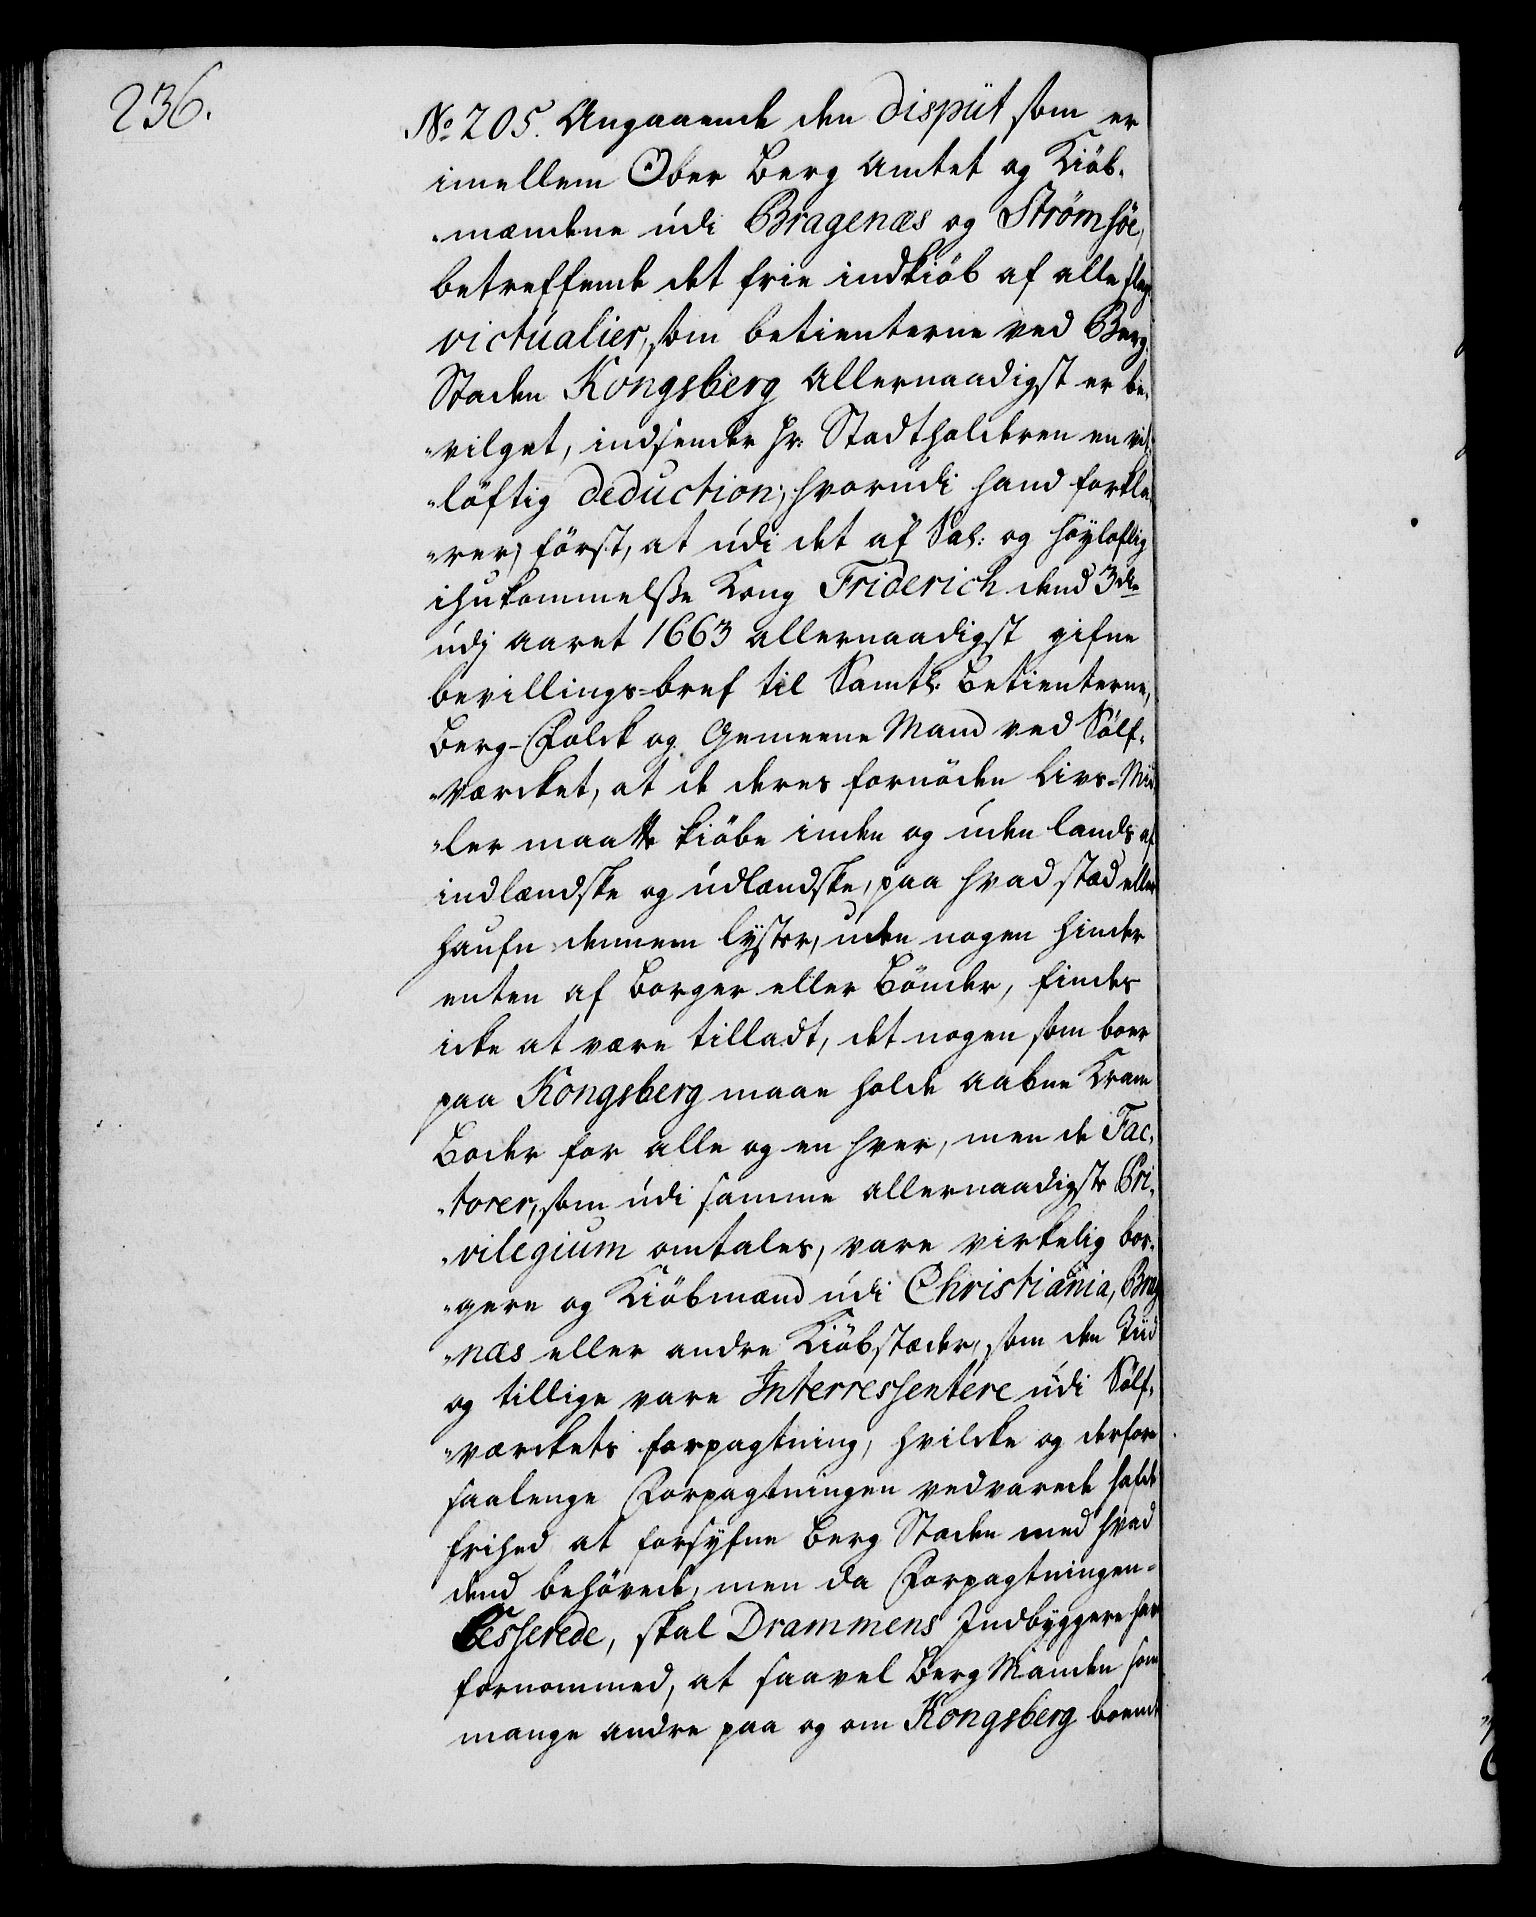 236.
No 205. Angaaende den dispüt som er
imellem Ober Berg Amtet og Kiöb-
-mændene udi Bragenæs og Strømsöe,
betreffende det frie indkiöb af alle slag
victualier, som betienterne ved Berg
Staden Kongsberg Allernaadigst er be-
-vilget, indsender Hr: Stadtholderen en vit-
-löftig deduction; hvorudi hand forkla-
-rer; först, at udi det af Sal: og höyloflig
ihukommelsße Kong Friderich dend 3die
udj aaret 1663 allernaadigst gifne
bevillings-bref til Samtl: Betienterne,
Berg-Folck og Gemeene Mand ved Sölf-
-Værcket, at de deres fornöden Livs-Mid-
-ler maatte kiöbe inden og uden lands af
indlændske og udlændske, paa hvad stæd eller
haufn dennem lyster, uden nogen hinder
enten af Borger eller Bönder, findes
icke at være tilladt, det nogen som boer
paa Kongsberg maae holde aabne Kram
Boder for alle og en hver, men de Fac-
-torer, som udi samme allernaadigste Pri-
-vilegium omtales, vare virkelig bor-
-gere og Kiöbmænd udi Christiania, Brag-
-næs eller andre Kiöbstæder, som den Tiid
og tillige vare Interressentere udi Sölf-
-værckets forpagtning, hvilcke og derfore
saalenge Forpagtningen vedvarede hafde
frihed at forsyfne Berg Staden med hvad
dend behövede, men da Forpagtningen-
Cesserede, skal Drammens Indbyggere har
fornommed, at saavel Berg Manden som
mange andre paa og om Kongsberg boende